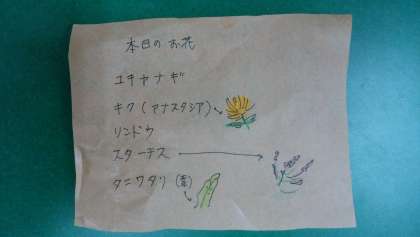 本日の お花
ユキヤナギ
キク(アナスタシア)
リンドウ
スターチス
タニワタリ(葉)